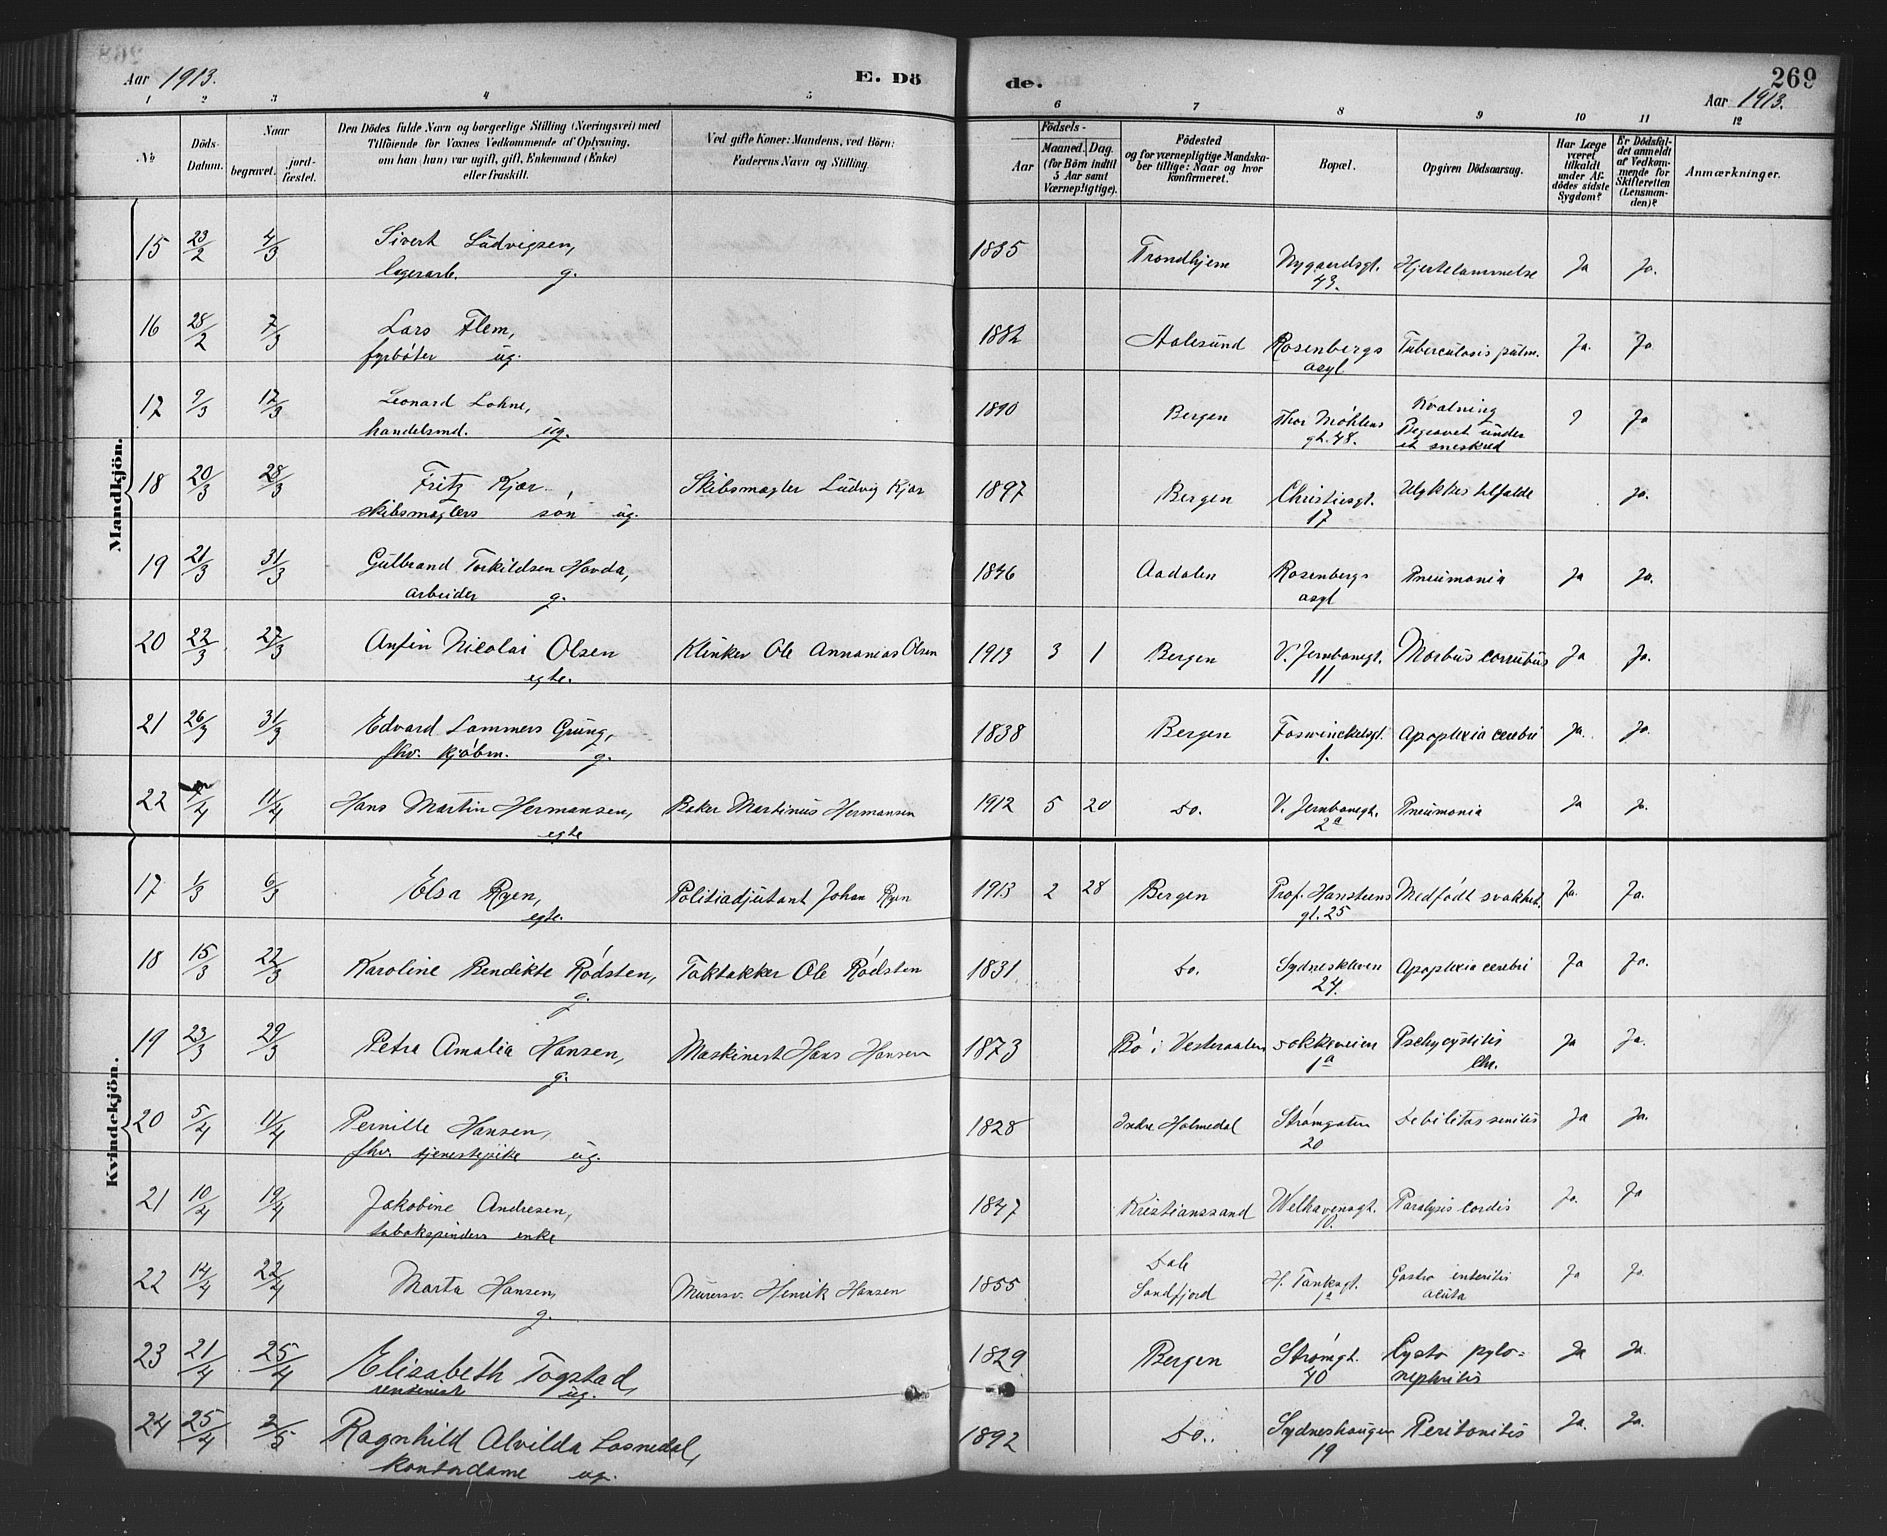 Aar 1913. E. Dö
de. 269
Aar 1913.
1 2 3 4 5 6 7 8 9 10 11 12
No
Döds-Datum.
Naar
begravet.
jord-fæstet.
Den Dödes fulde Navn og borgerlige Stilling (Næringsvei) med
Tilföiende for Voxnes Vedkommende af Oplysning,
om han (hun) var ugift, gift, Enkemand (Enke)
eller fraskilt.
Ved gifte Koner: Mandens, ved Börn:
Faderens Navn og Stilling.
Födsels-
Aar
Maaned. Dag.
(for Börn indtil
5 Aar samt
Værnepligtige).
Födested
og for værnepligtige Mandska-
ber tillige: Naar og hvor
konfirmeret.
Bopæl.
Opgiven Dödsaarsag.
Har Læge
været
tilkaldt
under Af-
dödes sidste
Sygdom?
Er Dödsfal-
det anmeldt
af Vedkom-
mende for
Skifteretten
(Lensman-
den)?
Anmærkninger.
Mandkjön.
15 23/2 4/3 Sivert Ludvigsen, 1835 Trondhjem Nygaardsgt. Hjertelammelse Ja Ja.
lagerarb. g. 43.
16 28/2 7/3 Lars Flem, 1882 Aalesund Rosenbergs Tuberculosis pulm. Ja. Ja
fyrbøter ug. asyl
17 9/3 17/3 Leonard Lohne, 1890 Bergen Thor Møhlens Kvælning ? Ja
handelsmd. ug. gt. 48. Begravet under
et sneskred
18 20/3 28/3 Fritz Kjær Skibsmægler Ludvig Kjær 1897 Bergen Christiesgt. Ulykkes tilfælde Ja.
skibsmæglers søn ug. 17
19 21/3 31/3 Gulbrand Torkildsen Havda, 1846 Aadalen Rosenbergs Pneumonia Ja Ja.
arbeider g. asyl
20 22/3 27/3 Anfin Nicolai Olsen Klinker Ole Annanias Olsen 1913 3 1 Bergen V. Jernbanegt. Morbus Ja Ja.
egte. 11
21 26/3 31/3 Edvard Lammers Grung, 1838 Bergen Foswinckelsgt. Apoplexia cerebri Ja. Ja.
fhv. kjøbm. g. 1.
22 /4 11/4 Hans Martin Hermansen, Baker Martinus Hermansen 1912 5 20 Do. V. Jernbanegt. Pneumonia Ja Ja.
egte 2a
Kvindekjön.
17 1/3 6/3 Elsa Ryen, Politiadjutant Johan Ryen 1913 2 28 Bergen Prof. Hansteens Medfødt svakhet. Ja. Ja.
egte. gt. 25
18 15/3 22/3 Karoline Bendikte Rødsten, Taktækker Ole Rødsten 1831 Do. Sydneskleven Apoplexia cerebri Ja Ja.
g. 24.
19 23/3 29/3 Petra Amalia Hansen, Maskinist Hans Hansen 1873 Bø i Vesteraalen Dokkeveien Ja Ja.
g. 1a chr.
20 5/4 11/4 Pernille Hansen, 1828 Indre Holmedal Strømgaten Debilitas senilis Ja Ja.
fhv. tjenestepike ug. 20
21 10/4 19/4 Jakobine Andresen, 1847 Kristianssand Welhavensgt. Paralysis cordis Ja. Ja
tobakspinders enke 10.
22 14/4 22/4 Marta Hansen, Murersv. Henrik Hansen 1855 Dale H. Tanksgt. Gastro enteritis Ja Ja.
g. Sandfjord 1a acuta
23 21/4 25/4 Elisabeth Togstad, 1829 Bergen Strømgt. Cysto pylo= Ja Ja.
rentenist ug. 40 nephritis
24 25/4 2/5 Ragnhild Alvilda Losnedal, 1892 Do. Sydneshaugen Peritonitis Ja. Ja.
kontordame ug. 19